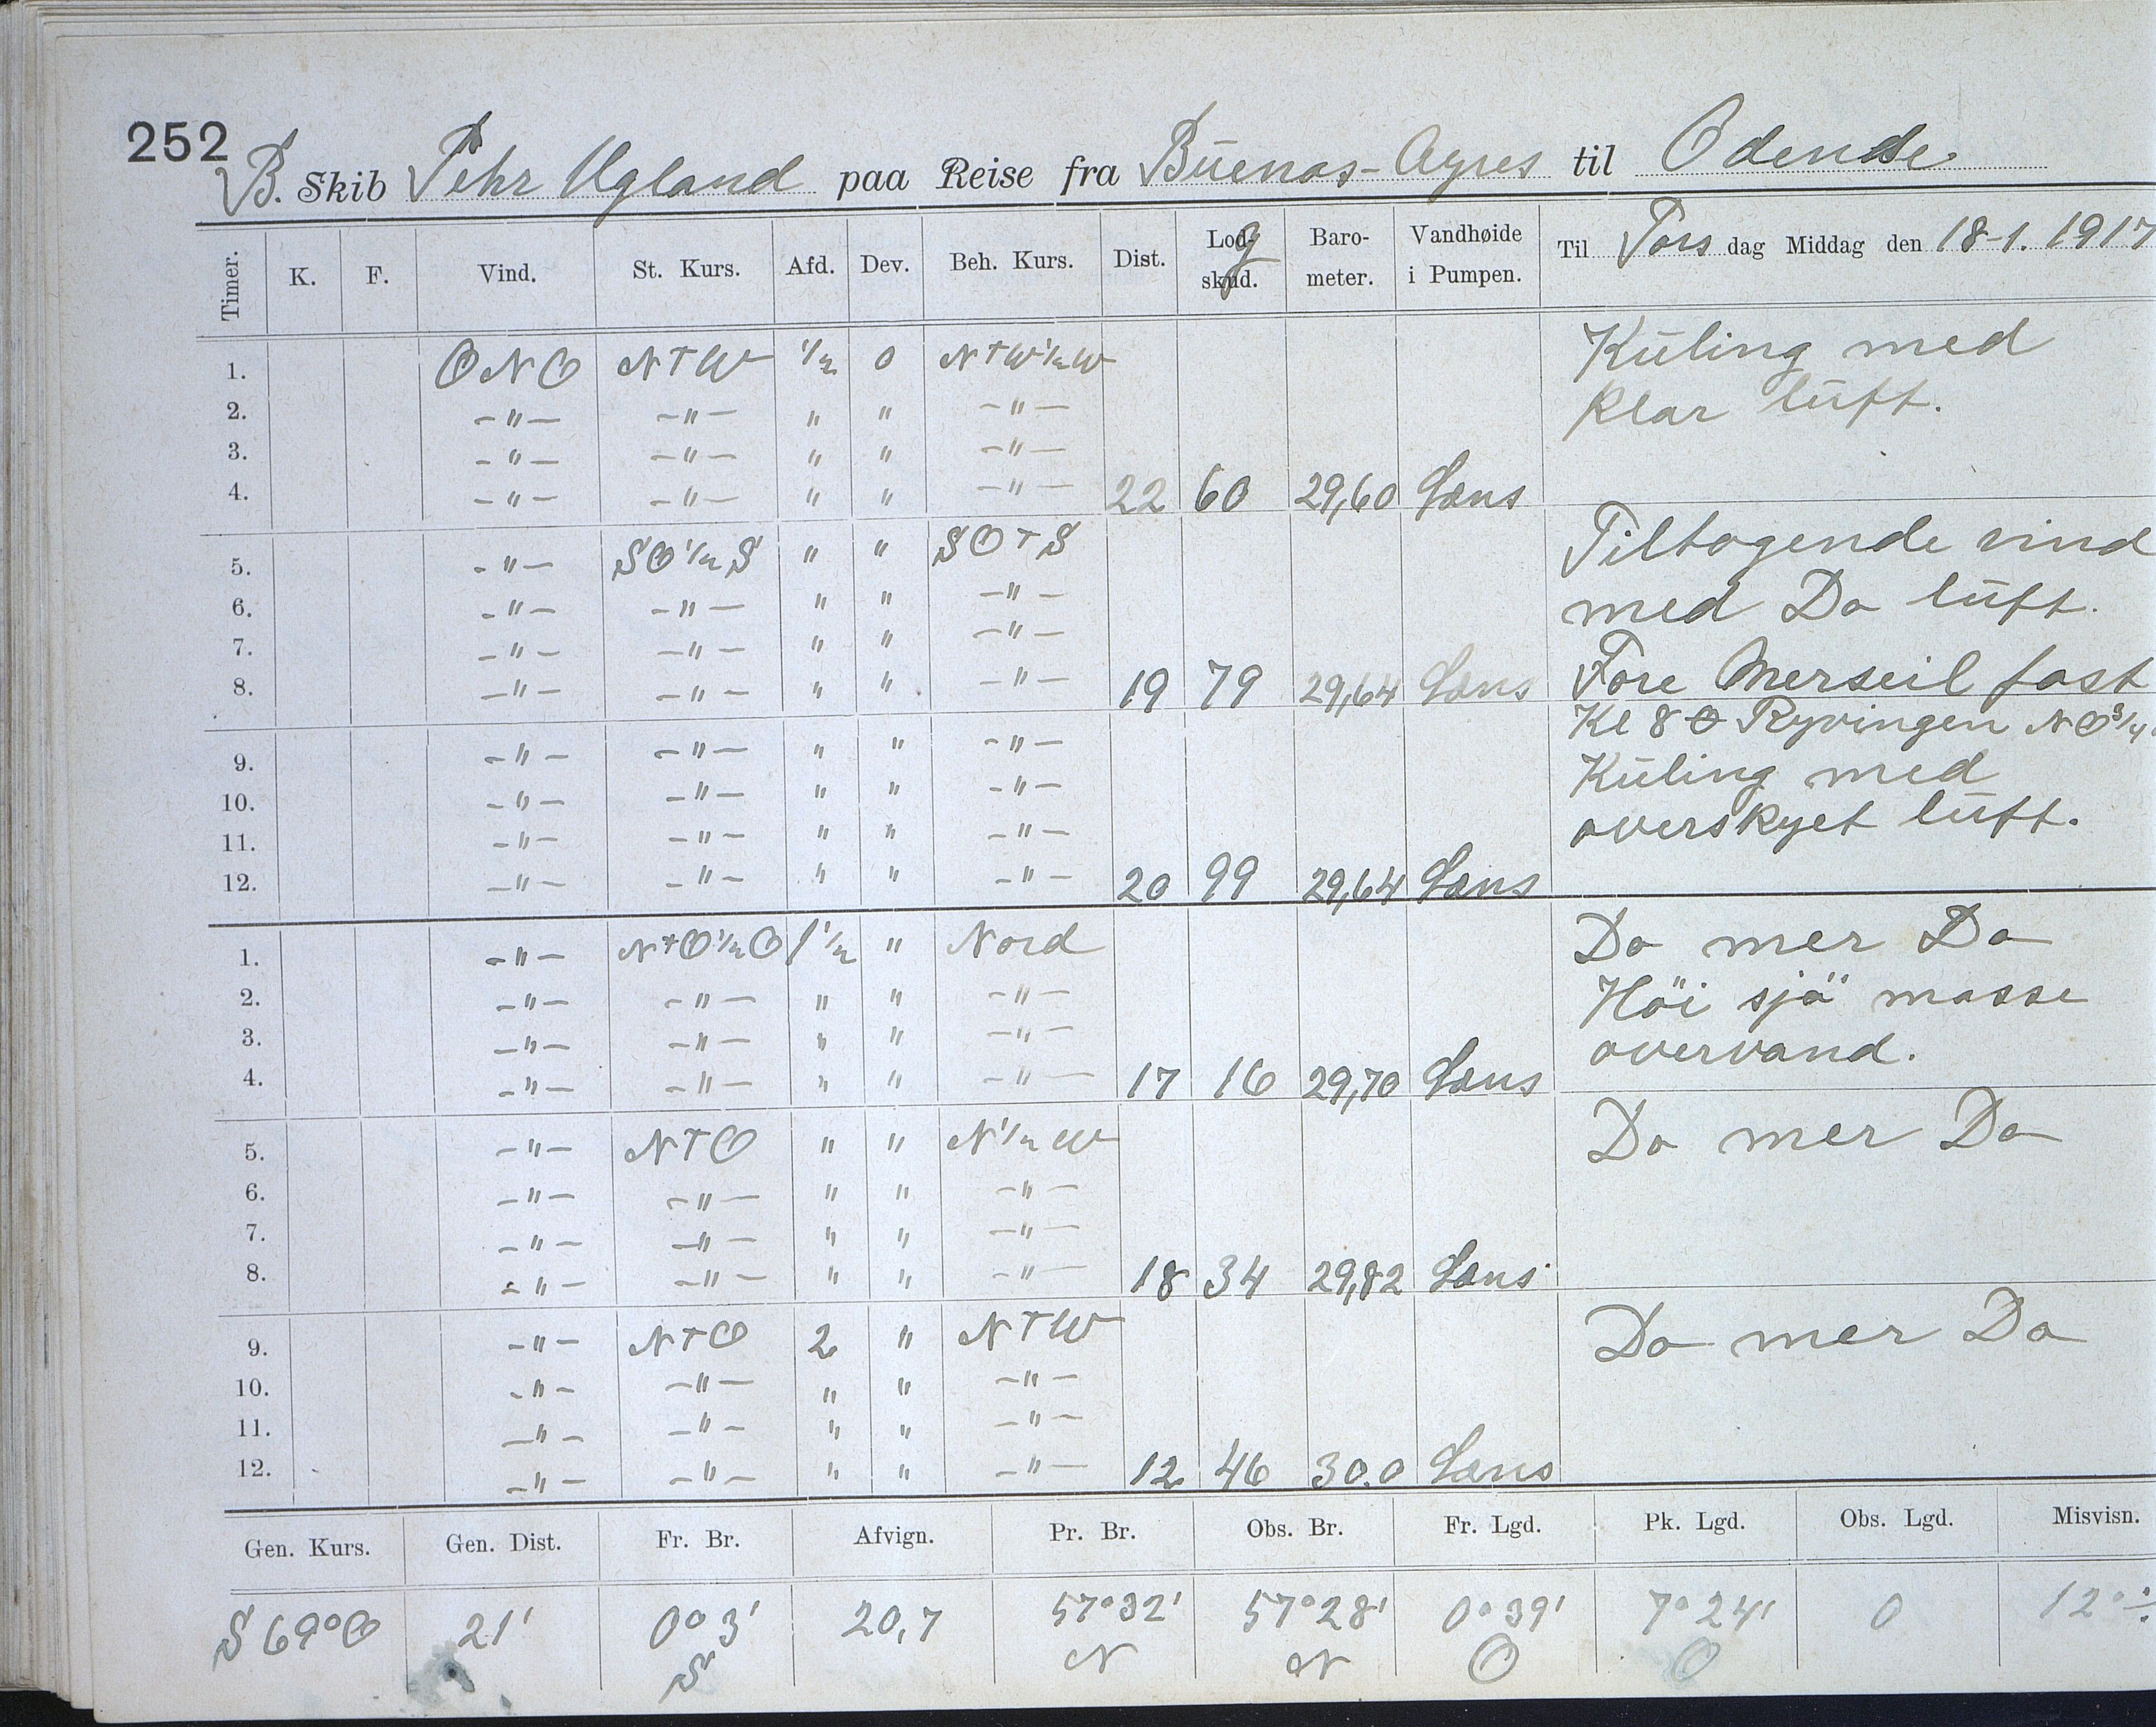 252
B. Skib Tehr Ugland paa Reise fra Buenos-Ayres til Odense
Timer. K. F. Vind. St. Kurs. Afd. Dev. Beh. Kurs. Dist. Lodg skud. Baro- meter. Vandhøide i Pumpen. Til Tors dag Middag den 18-1. 1917
1. ONO NTW 1/2 0 NTW1/2W Kūling med
2. -"- -"- " " -"- klar lūft.
3. -"- -"- " " -"-
4. -"- -"- " " -"- 22 60 29,60 Læns
5. -"- SO1/2S " " SOTS Tiltagende vind
6. -"- -"- " " -"- med Do lūft.
7. -"- -"- " " -"-
8. -"- -"- " " -"- 19 79 29,64 Læns Fore Merseil fast
Kl 8 O Ryvingen NO3/4
9. -"- -"- " " -"- Kūling med
10. -"- -"- " " -"- overskyet lūft.
11. -"- -"- " " -"-
12. -"- -"- " " -"- 20 99 29,64 Læns
1. -"- NTO1/2O 1 1/2 " Nord Do mer Do
2. -"- -"- " " -"- Höi sjö masse
3. -"- -"- " " -"- overvand.
4. -"- -"- " " -"- 17 16 29,70 Læns
5. -"- NTO " " N1/2W Do mer Do
6. -"- -"- " " -"-
7. -"- -"- " " -"-
8. -"- -"- " " -"- 18 34 29,82 Læns
9. -"- NTO 2 " NTW Do mer Do
10. -"- -"- " " -"-
11. -"- -"- " " -"-
12. -"- -"- " " -"- 12 46 30.0 Læns
Gen. Kurs. Gen. Dist. Fr. Br. Afvign. Pr. Br. Obs. Br. Fr. Lgd. Pk. Lgd. Obs. Lgd. Misvisn.
S 69°O 21' 0° 3' 20,7 57°32' 57°28' 0°39' 7°24' 0 12°
S N N O O